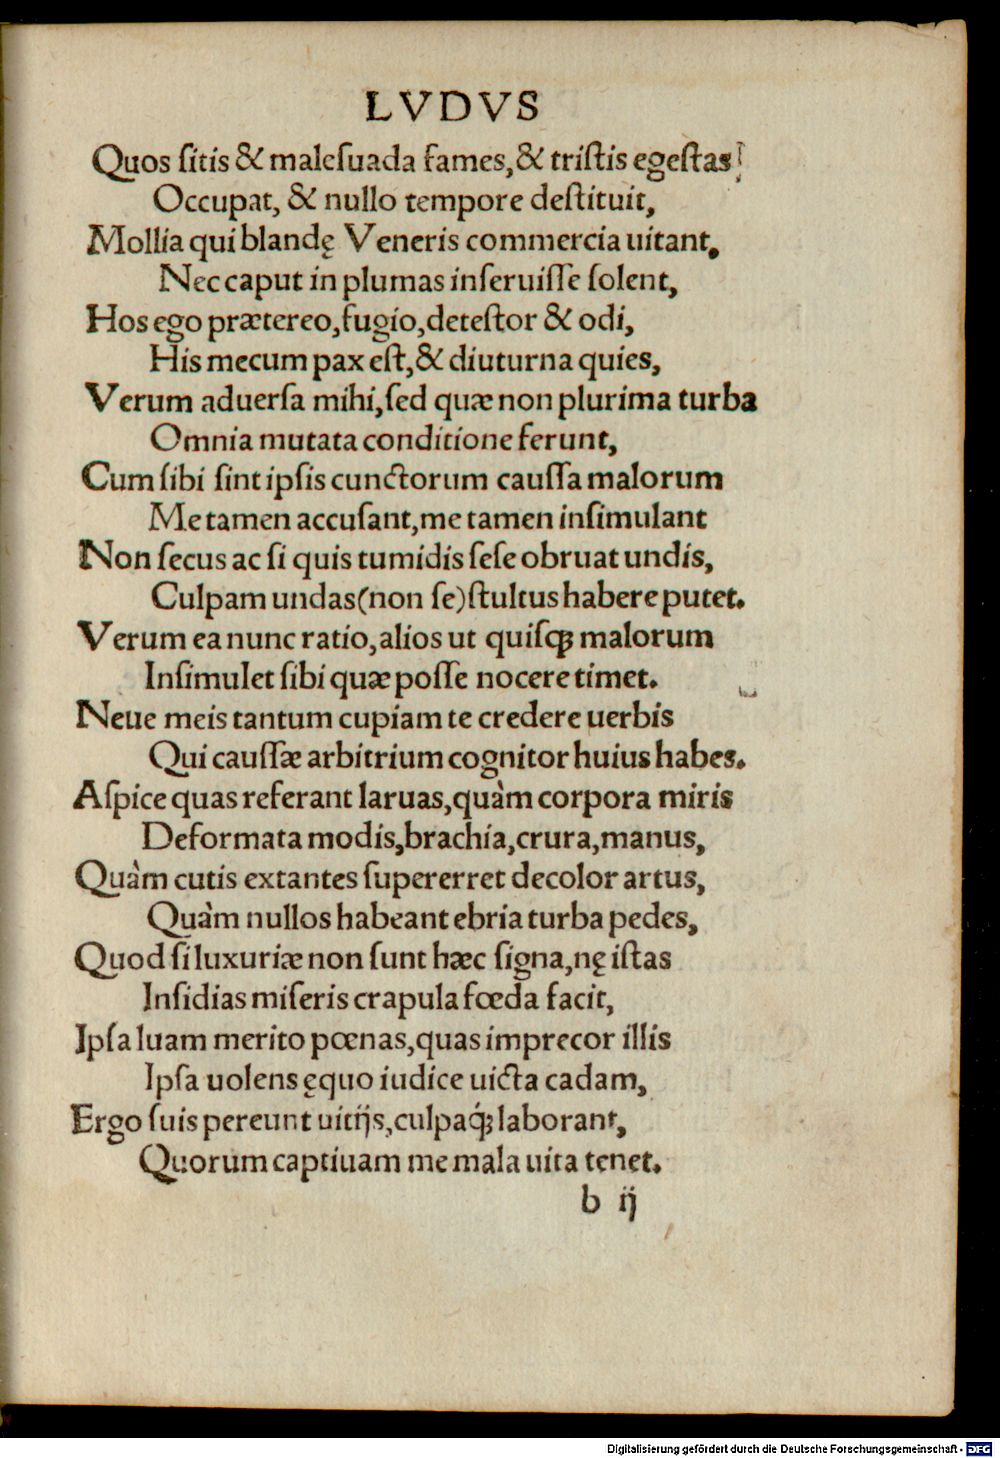 LVDVS
Quos ſitis & maleſuada fames,& triſtis egeſtas
Occupat, & nullo tempore deſtituit,
Mollia qui blandę Veneris commercia uitant,
Nec caput in plumas inſeruiſſe ſolent,
Hos ego prætereo,fugio,deteſtor & odi,
His mecum pax eſt,& diuturna quies,
Verum aduerſa mihi,ſed quæ non plurima turba
Omnia mutata conditione ferunt,
Cum ſibi ſint ipſis cunctorum cauſſa malorum
Me tamen accuſant,me tamen inſimulant
Non ſecus ac ſi quis tumidis ſeſe obruat undis,
Culpam undas(non ſe)ſtultus habere putet.
Verum ea nunc ratio,alios ut quiſqꝫ malorum
Inſimulet ſibi quæ poſſe nocere timet.
Neue meis tantum cupiam te credere uerbis
Qui cauſſæ arbitrium cognitor huius habes.
Aſpice quas referant laruas,quàm corpora miris
Deformata modis,brachia,crura,manus,
Quàm cutis extantes ſupererret decolor artus,
Quàm nullos habeant ebria turba pedes,
Quod ſi luxuriæ non ſunt hæc ſigna,nę iſtas
Inſidias miſeris crapula fœda facit,
Ipſa luam merito pœnas,quas imprecor illis
Ipſa uolens ęquo iudice uicta cadam,
Ergo ſuis pereunt uitijs,culpaq́ꝫ laborant,
Quorum captiuam me mala uita tenet.
b ij
Digitalisierung gefördert durch die Deutsche Forschungsgemeinschaft - DFG